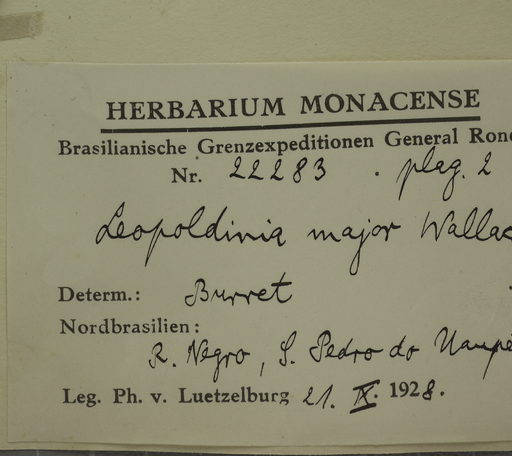 HERBARIUM MONACENSE
Brasilianische Grenzexpeditionen General Rond
Nr. 22283 . plag. 2
Leopoldinia major Wallac
Determ.: Burret
Nordbrasilien:
R. Negro, S. Pedro do Uaupé
Leg. Ph. v. Luetzelburg 21. IX. 1928.